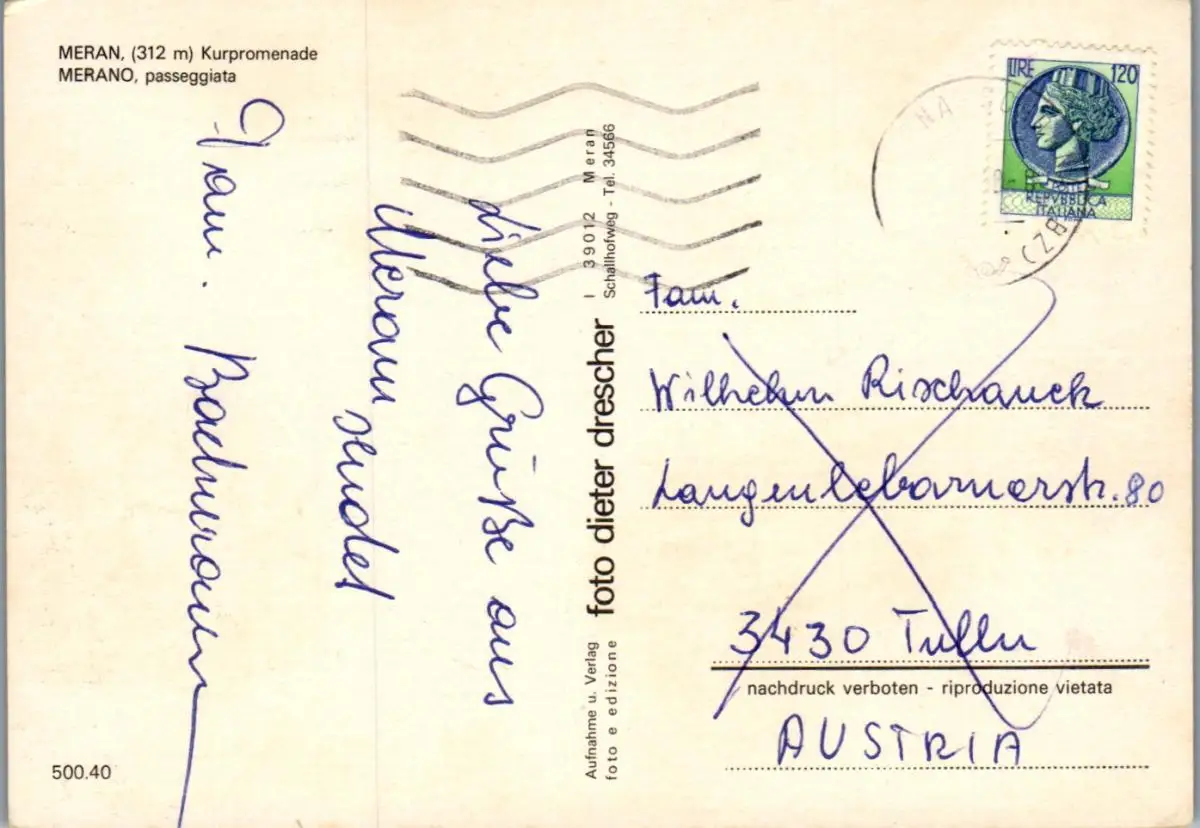 MERAN, (312 m) Kurpromenade
MERANO, passeggiata
Liebe Grüße aus
Meran sendet
Fam. Bachmann
500.40
Aufnahme u. Verlag foto dieter drescher I 39012 Meran
foto e edizione Schallhofweg - Tel. 34566
LIRE 120
POSTE
REPVBBLICA
ITALIANA
NA
(CZB
Fam.
Wilhelm Rischanek
Langenlebarnerstr. 80
3430 Tulln
nachdruck verboten - riproduzione vietata
AUSTRIA